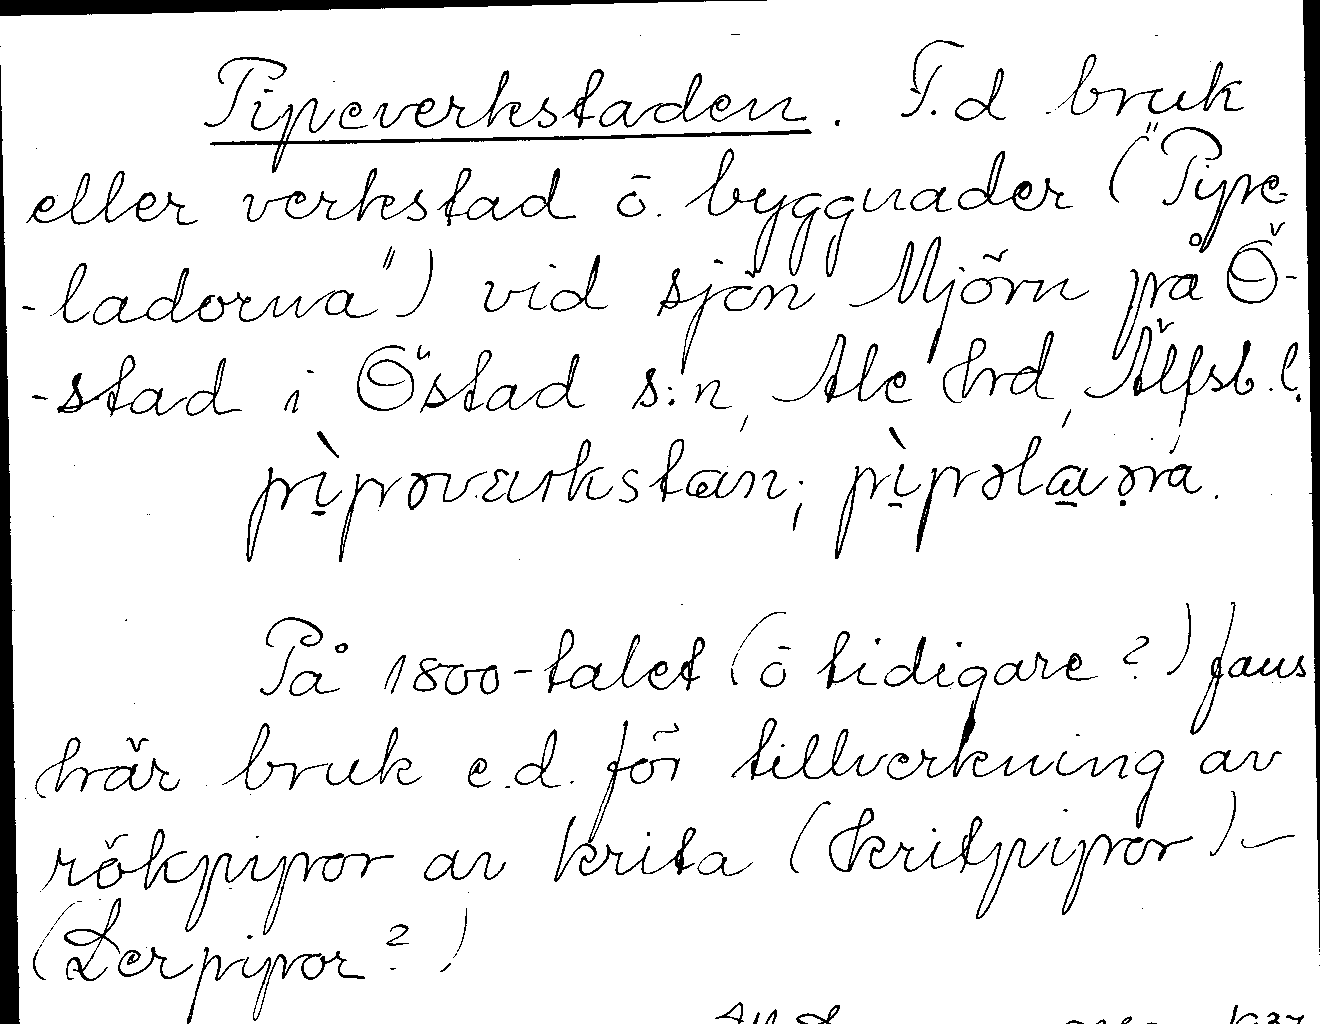 Pipeverkstaden. F.d bruk
eller verkstad ō. byggnader ("Pipe-
-ladorna") vid sjön Mjörn på Ö-
-stad i Östad s:n, Ale hrd, Älfsb. l.
pìpəvarkstan; pìpəlaəra.
På 1800-talet (ō tidigare?) fans
här bruk e.d. för tillverkning av
rökpipor av krita (Kritpipor) –
(Lerpipor?)